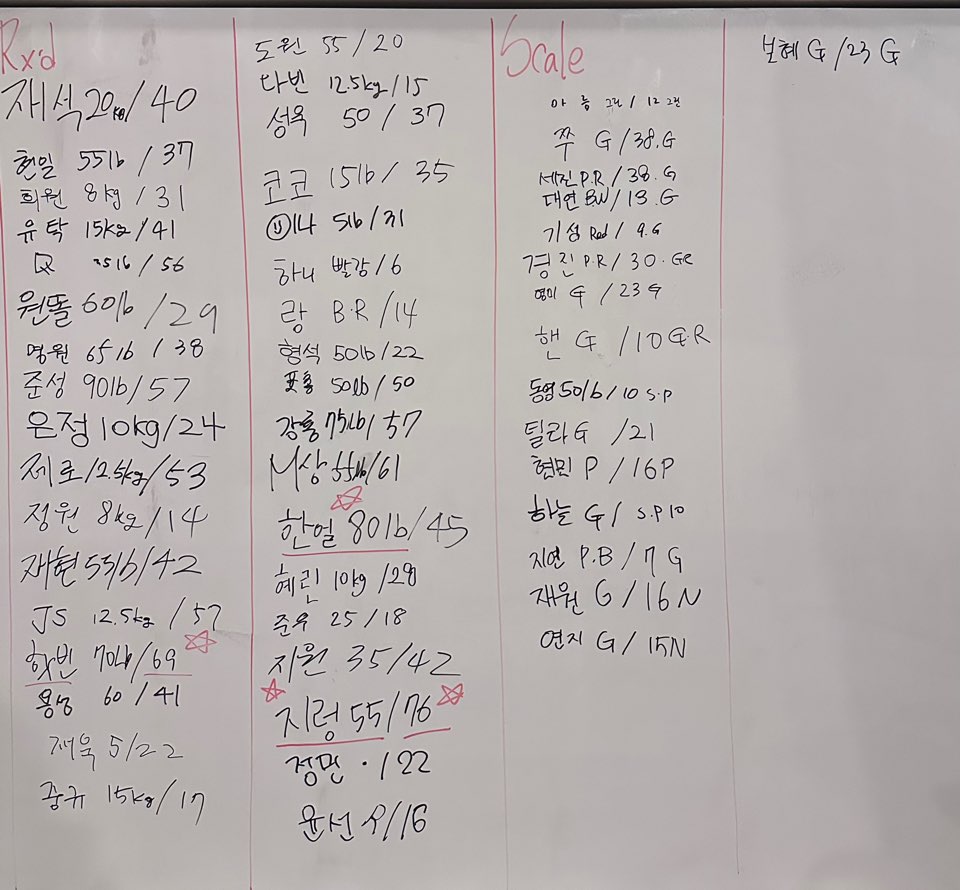 Rx'd
재석 20kg/40
현일 55lb/37
희원 8kg/31
유탁 15kg/41
Q 35lb/56
원똘 60lb/29
영원 65lb/38
준성 90lb/57
은정 10kg/24
제로 12.5kg/53
정원 8kg/14
재현 55lb/42
JS 12.5kg/57
70lb/69
용성 60/41
재욱 5/22
중규 15kg/17
도원 55/20
다빈 12.5kg/15
성욱 50/37
코코 15lb/35
5lb/31
하니 빨강/6
랑 B.R/14
형석 50lb/22
50lb/50
강룡 75lb/57
M상 55lb/61
한얼 80lb/45
혜린 10kg/28
준우 25/18
지원 35/42
지렁 55/76
정민 ·/22
윤선 /16
Scale
아름 /12
쭈 G/38.G
세진 P.R/38.G
대연 BW/13.G
기성 Red/9.G
경진 P.R/30.GR
영미 G/23G
핸 G/10 G.R
동영 50lb/10 S.P
틸라 G/21
현민 P/16P
하늘 G/S.P10
지연 P.B/7 G
재원 G/16N
연지 G/15N
보혜 G/23 G